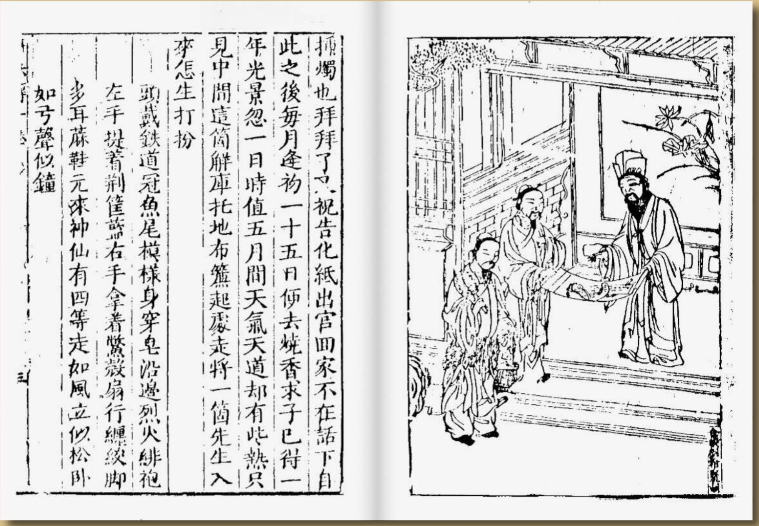 插燭也拜拜了又祝告化紙出宮回家不在話下自
此之後每月逢初一十五日便去燒香求子已得一
年光景忽一日時值五月間天氣天道却有些熱只
見中間這箇解庫托地布簾起處走將一箇先生入
來怎生打扮
頭戴鉄道冠魚尾模樣身穿皂沿邊烈火緋袍
左手提着荊筐籃右手拿着鱉殼扇行纏絞脚
多耳蔴鞋元來神仙有四等走如風立似松卧
如弓聲似鐘
三